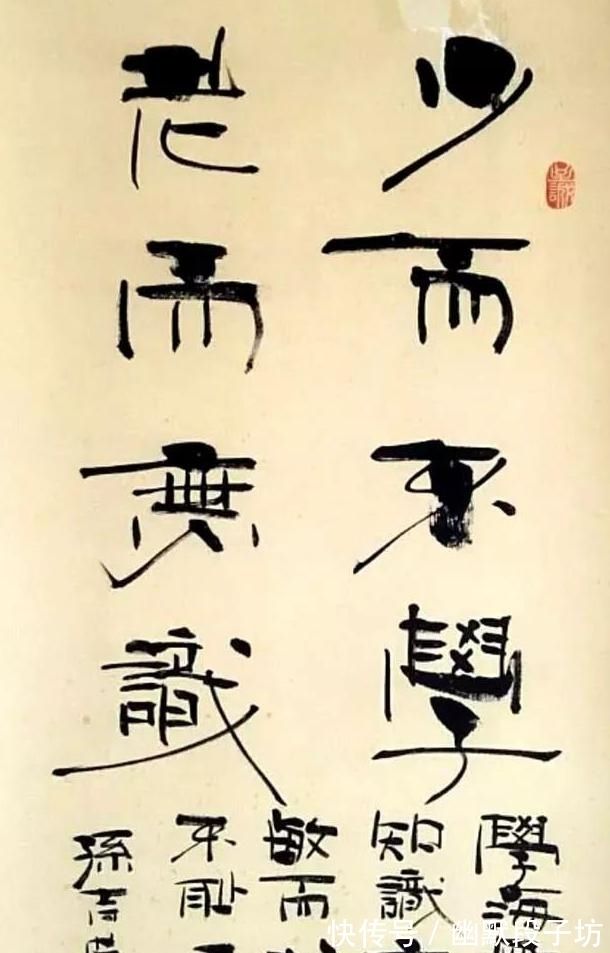 少而不學
老而無識
學海
知識
敏而
不恥
孫吉
快传号 / 幽默段子坊